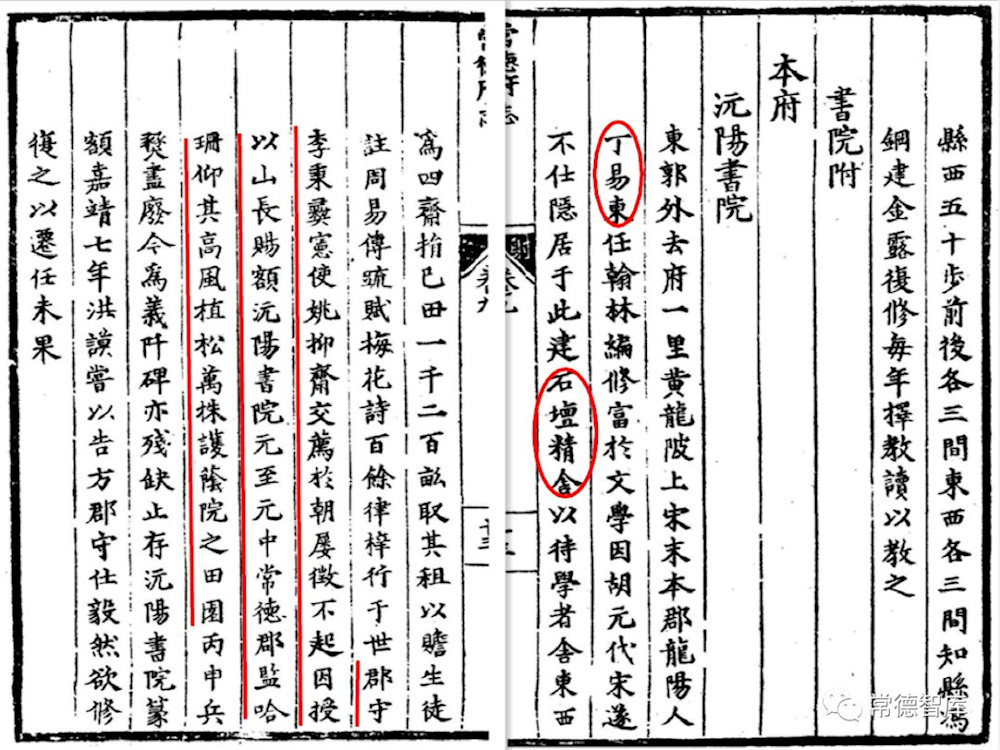 縣西五十步前後各三間東西各三間知縣馮
鋼建金露復修每年擇教讀以教之
書院附
本府
沅陽書院
東郭外去府一里黃龍陂上宋末本郡龍陽人
丁易東任翰林編修富於文學因胡元代宋遂
不仕隱居于此建石壇精舍以待學者舍東西
常德府志
卷九
爲四齋捐己田一千二百畝取其租以贍生徒
註周易傳疏賦梅花詩百餘律梓行于世郡守
李秉彝憲使姚抑齋交薦於朝屢徵不起因授
以山長賜額沅陽書院元至元中常德郡監哈
珊仰其高風植松萬株護蔭院之田園丙申兵
燹盡廢今爲義阡碑亦殘缺止存沅陽書院篆
額嘉靖七年洪謨嘗以告方郡守仕毅然欲修
復之以遷任未果
常德智库